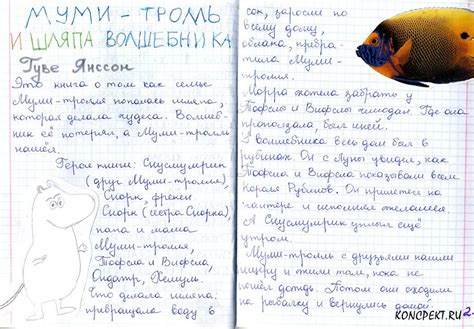 МУМИ - ТРОЛЛЬ
И ШЛЯПА ВОЛШЕБНИКА
Туве Янссон
Это книга о том как семье
Муми-тролля попалась шляпа,
которая делала чудеса. Волшеб-
ник её потерял, а Муми-тролль
нашёл.
Герои книги: Снусмумрик
(друг Муми-тролля),
Снорк, фрекен
Снорк (сестра Снорка),
папа и мама
Муми-тролля,
Тофсла и Вифсла,
Ондатр, Хемуль.
Что делала шляпа:
превращала воду в
сок, заросли по
всему дому,
облака, превра-
тила Муми-
тролля.
Морра хотела забрать у
Тофслы и Вифслы чемодан. Где она
проползала, был иней.
У волшебника весь дом был в
рубинах. Он с Луны увидел, как
Тофсла и Вифсла показывали всем
Короля Рубинов. Он прилетел на
пантере и исполнял желания.
А Снусмумрик ушёл ещё
утром.
Муми-тролль с друзьями нашли
пещеру и жили там, пока не
пошёл дождь. Потом они сходили
на рыбалку и вернулись домой.
KONCPEKT.RU